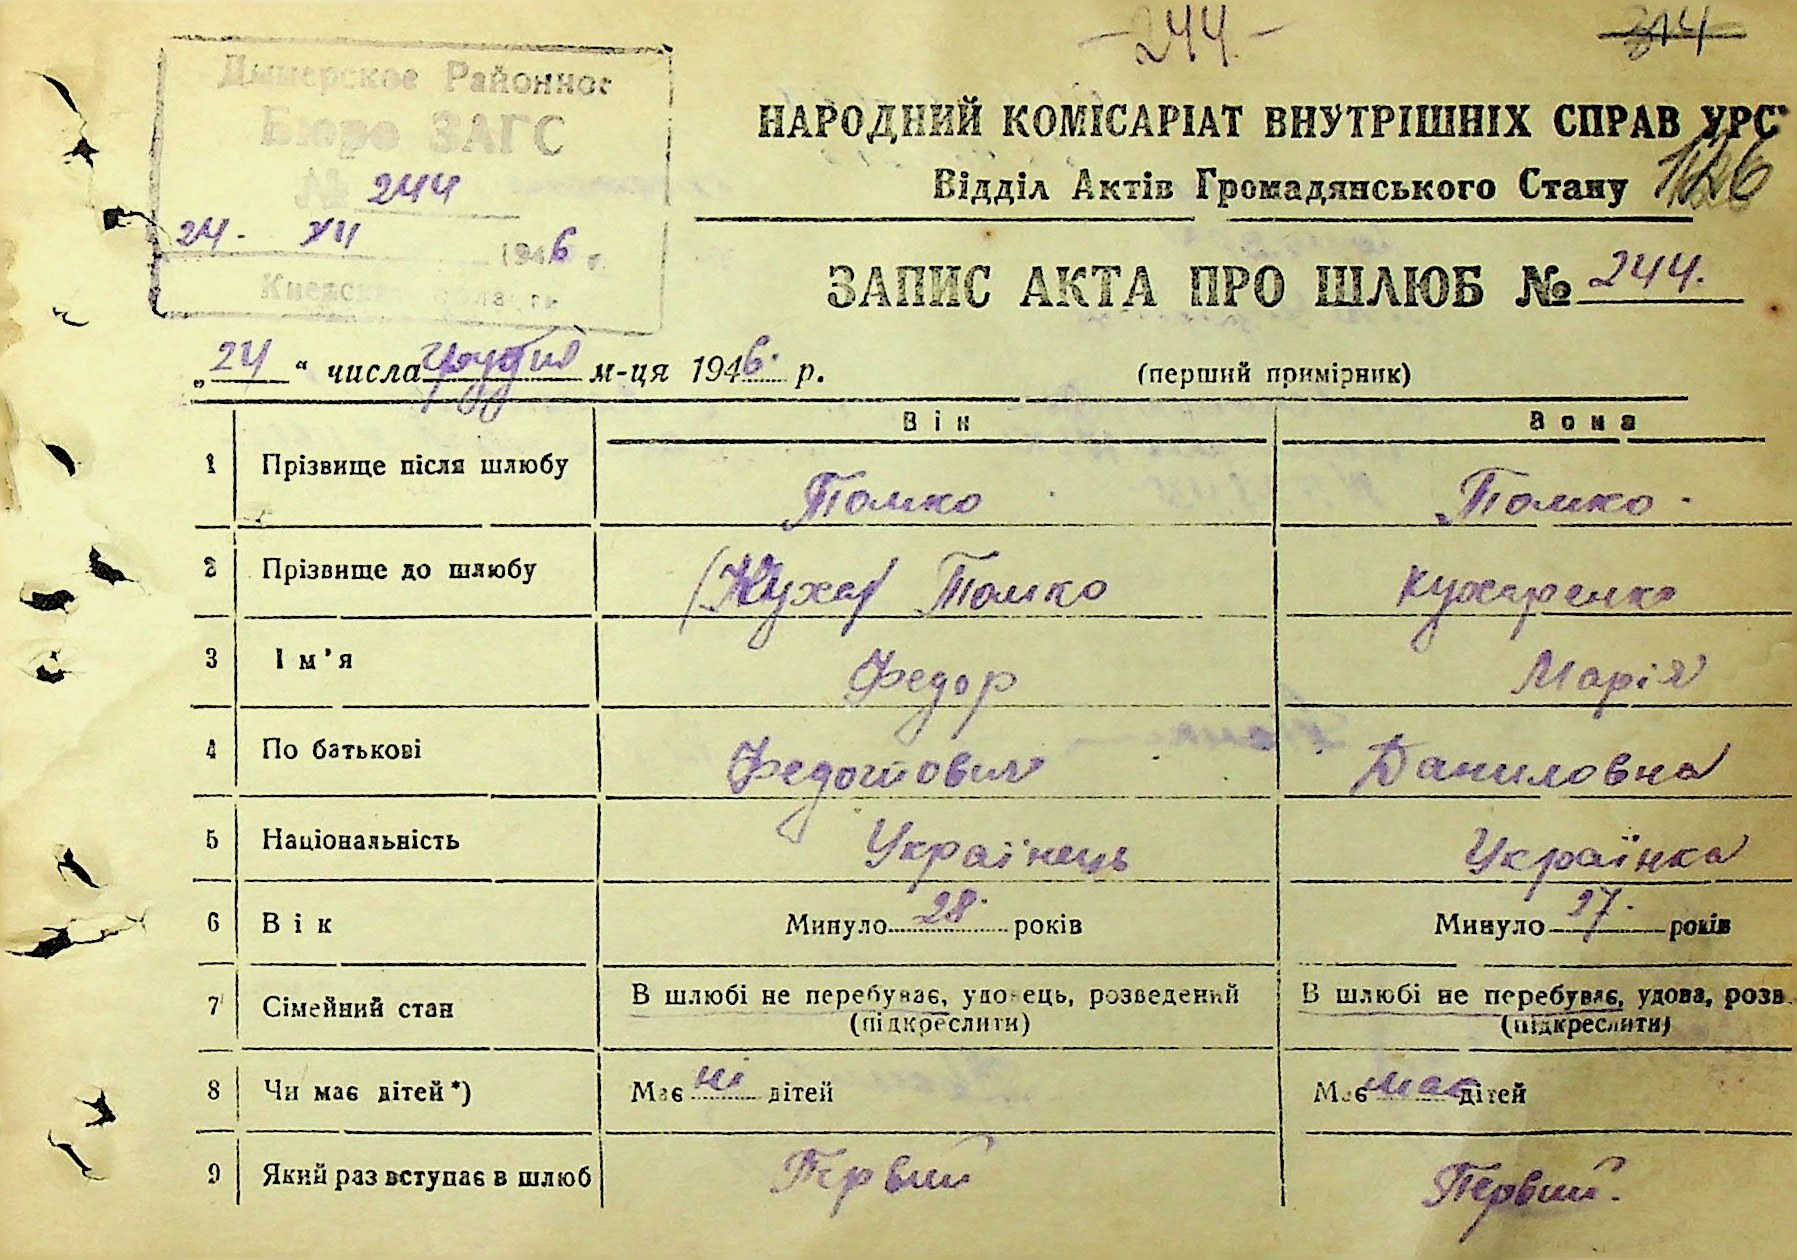 -244-
314
Дымерское Районное
Бюро ЗАГС
№ 244
24. XII 1946 г.
Киевской области
НАРОДНИЙ КОМІСАРІАТ ВНУТРІШНІХ СПРАВ УРС
Відділ Актів Громадянського Стану
126
ЗАПИС АКТА ПРО ШЛЮБ № 244.
„24“ числа грудня м-ця 1946. р. (перший примірник)
Він Вона
1 Прізвище після шлюбу Томко Томко.
2 Прізвище до шлюбу (Куха) Томко Кухаренко
3 Ім'я Федор Марія
4 По батькові Федотович Даниловна
5 Національність Українець Українка
6 Вік Минуло 28. років Минуло 27. років
7 Сімейний стан В шлюбі не перебуває, удовець, розведений В шлюбі не перебуває, удова, розв.
(підкреслити) (підкреслити)
8 Чи має дітей*) Має ні дітей Має має дітей
9 Який раз вступає в шлюб Первий Первий.